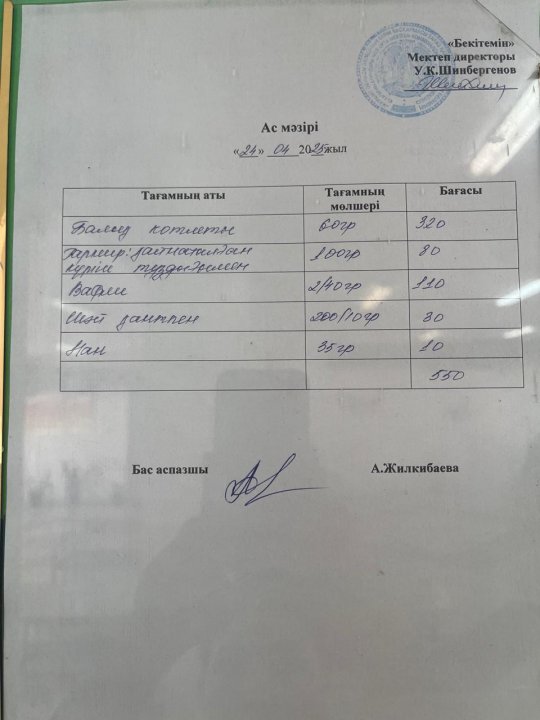 «Бекітемін»
Мектеп директоры
У.К.Шинбергенов
Ас мәзірі
«24» 04 2025жыл
Тағамның аты Тағамның мөлшері Бағасы
Балық котлеты 60гр 320
Гарнир: қайнатылған күріш тұздығымен 100гр 80
Вафли 2/40гр 110
Шәй қантпен 200/10гр 30
Нан 35гр 10
550
Бас аспазшы А.Жилкибаева